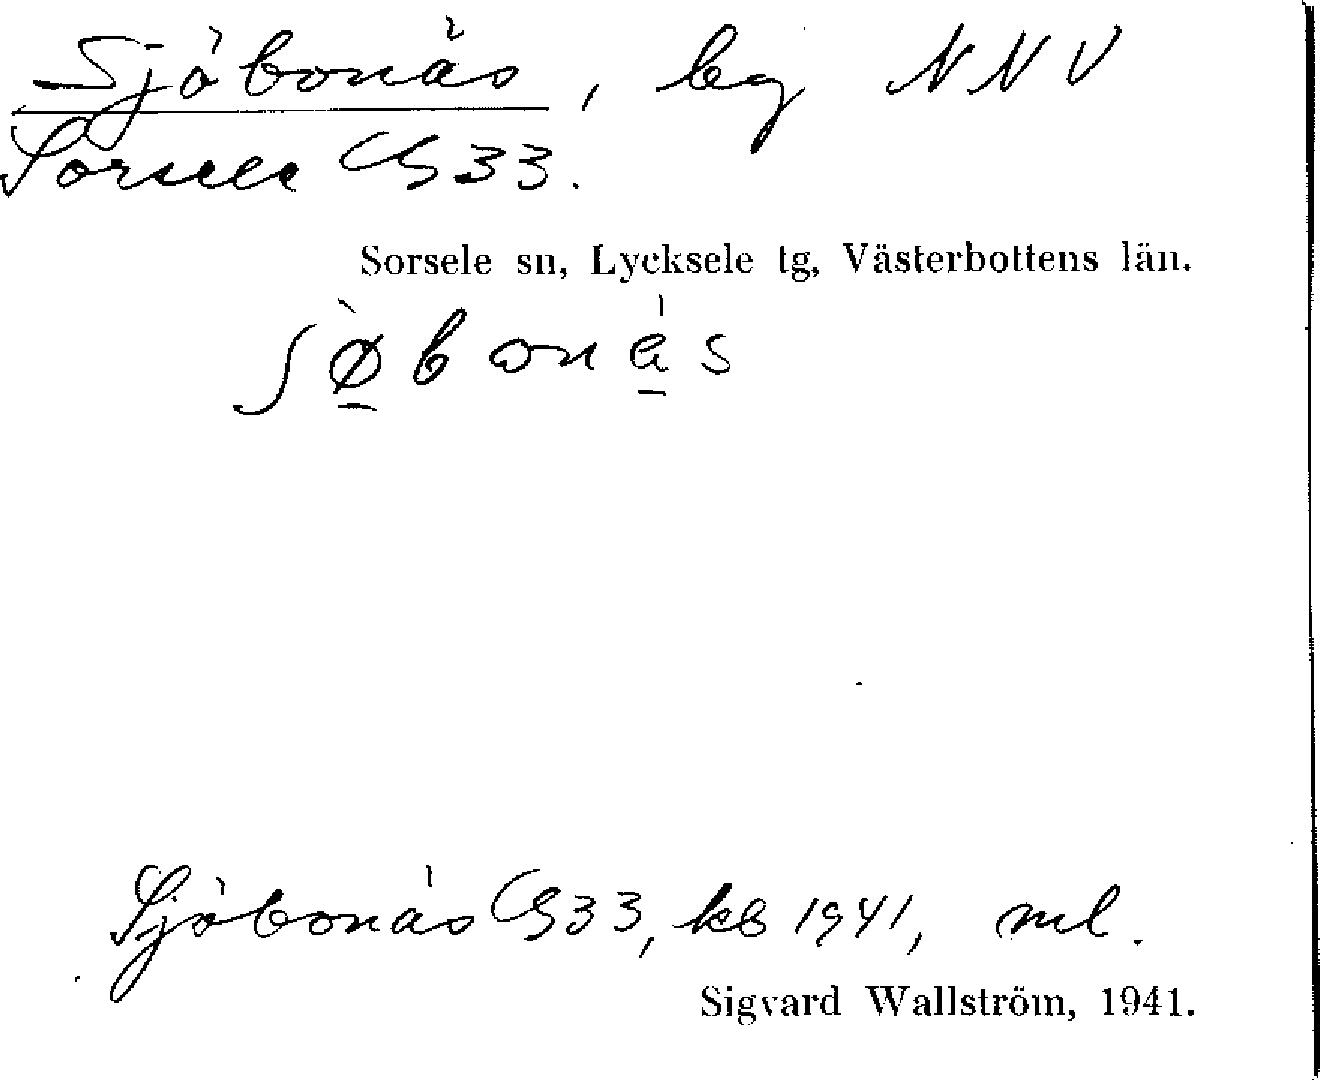 Sjöbonäs, by NNV
Sorsele CG 33.
Sorsele sn, Lycksele tg, Västerbottens län.
ʃø̠̀bonä̠́s
Sjöbonäs CG 33, kb 1941, ml.
Sigvard Wallström, 1941.